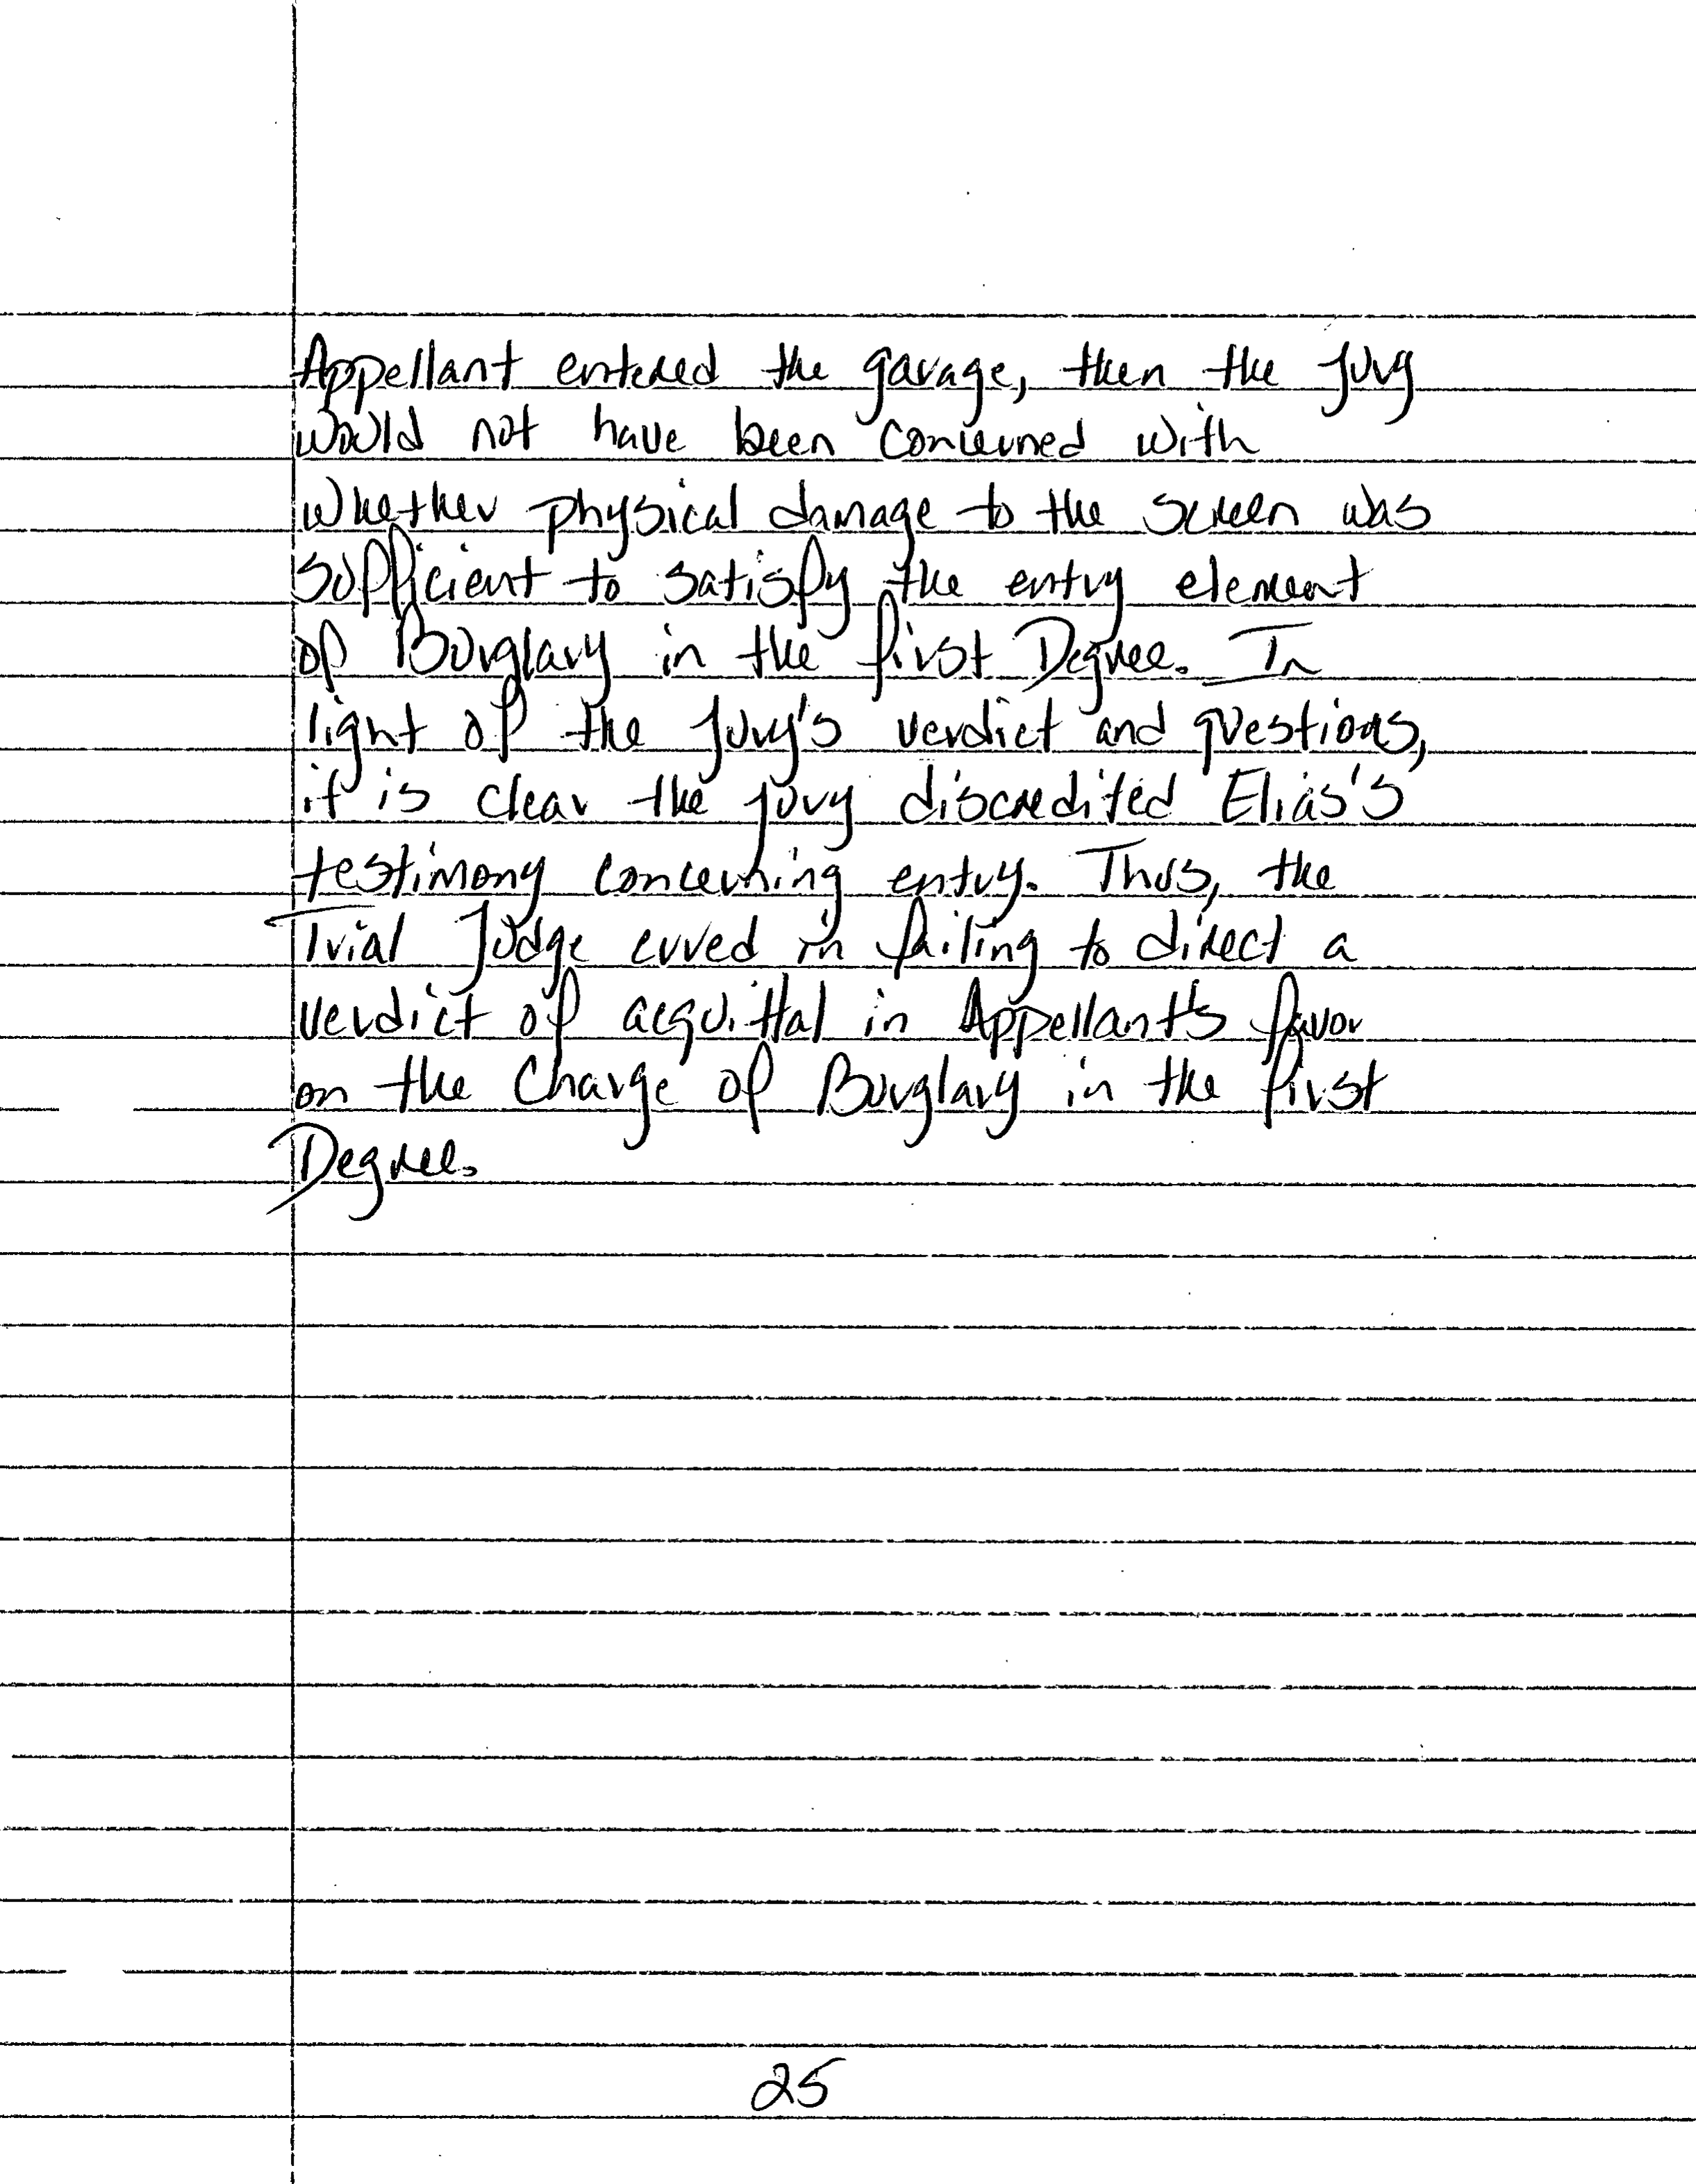 Appellant entered the garage, then the jury
would not have been concerned with
whether physical damage to the screen was
sufficient to satisfy the entry element
of Burglary in the first Degree. In
light of the jury's verdict and questions,
it is clear the jury discredited Elias's
testimony concerning entry. Thus, the
Trial Judge erred in failing to direct a
verdict of acquittal in Appellant's favor
on the Charge of Burglary in the first
Degree.
25